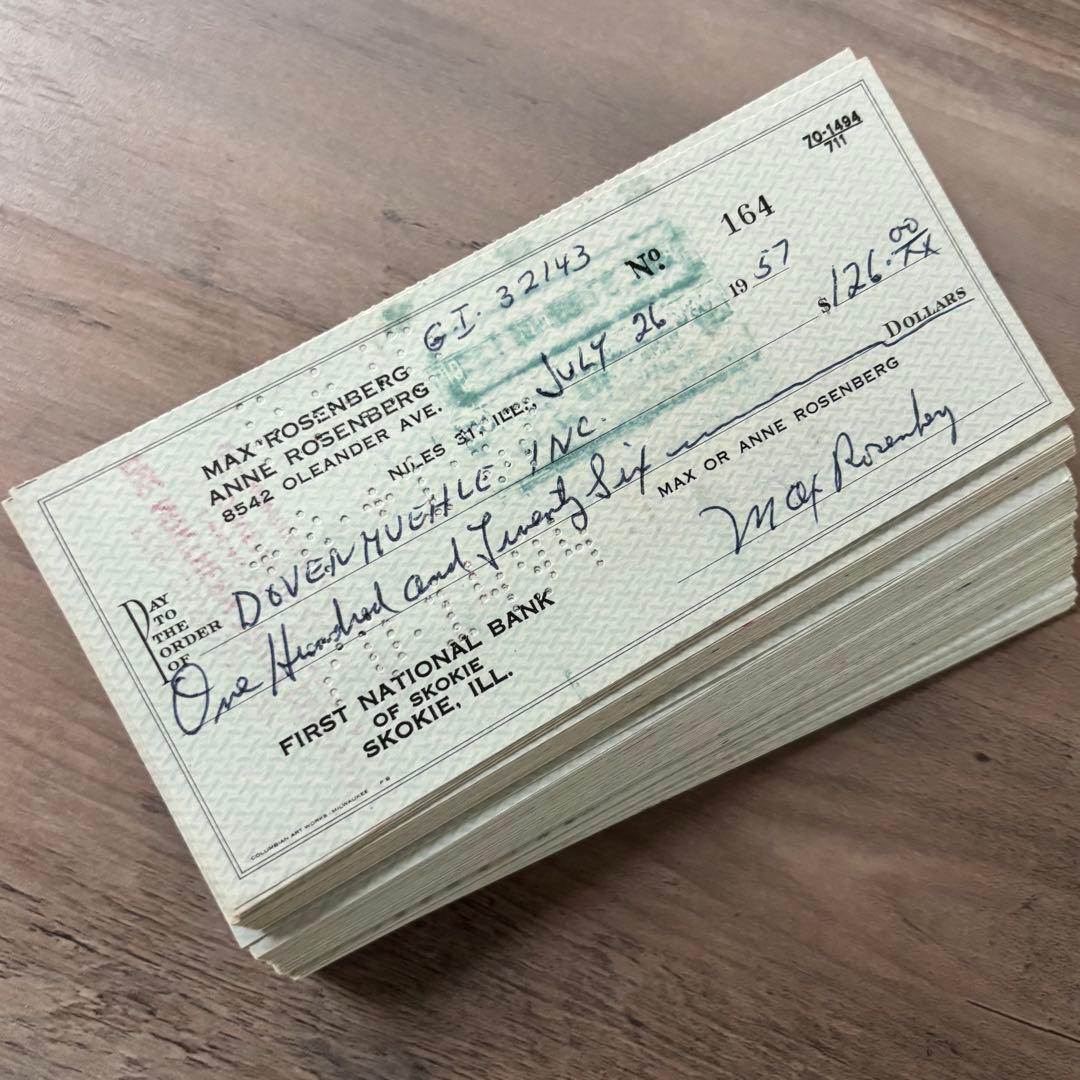 70-1494
711
G.I. 32143
Nº 164
MAX ROSENBERG
ANNE ROSENBERG
8542 OLEANDER AVE.
NILES 31, ILL., JULY 26 1957
PAY TO THE ORDER OF DOVENMUEHLE INC. $126.00/XX
One Hundred and Twenty Six DOLLARS
MAX OR ANNE ROSENBERG
Max Rosenberg
FIRST NATIONAL BANK
OF SKOKIE
SKOKIE, ILL.
COLUMBIAN ART WORKS - MILWAUKEE